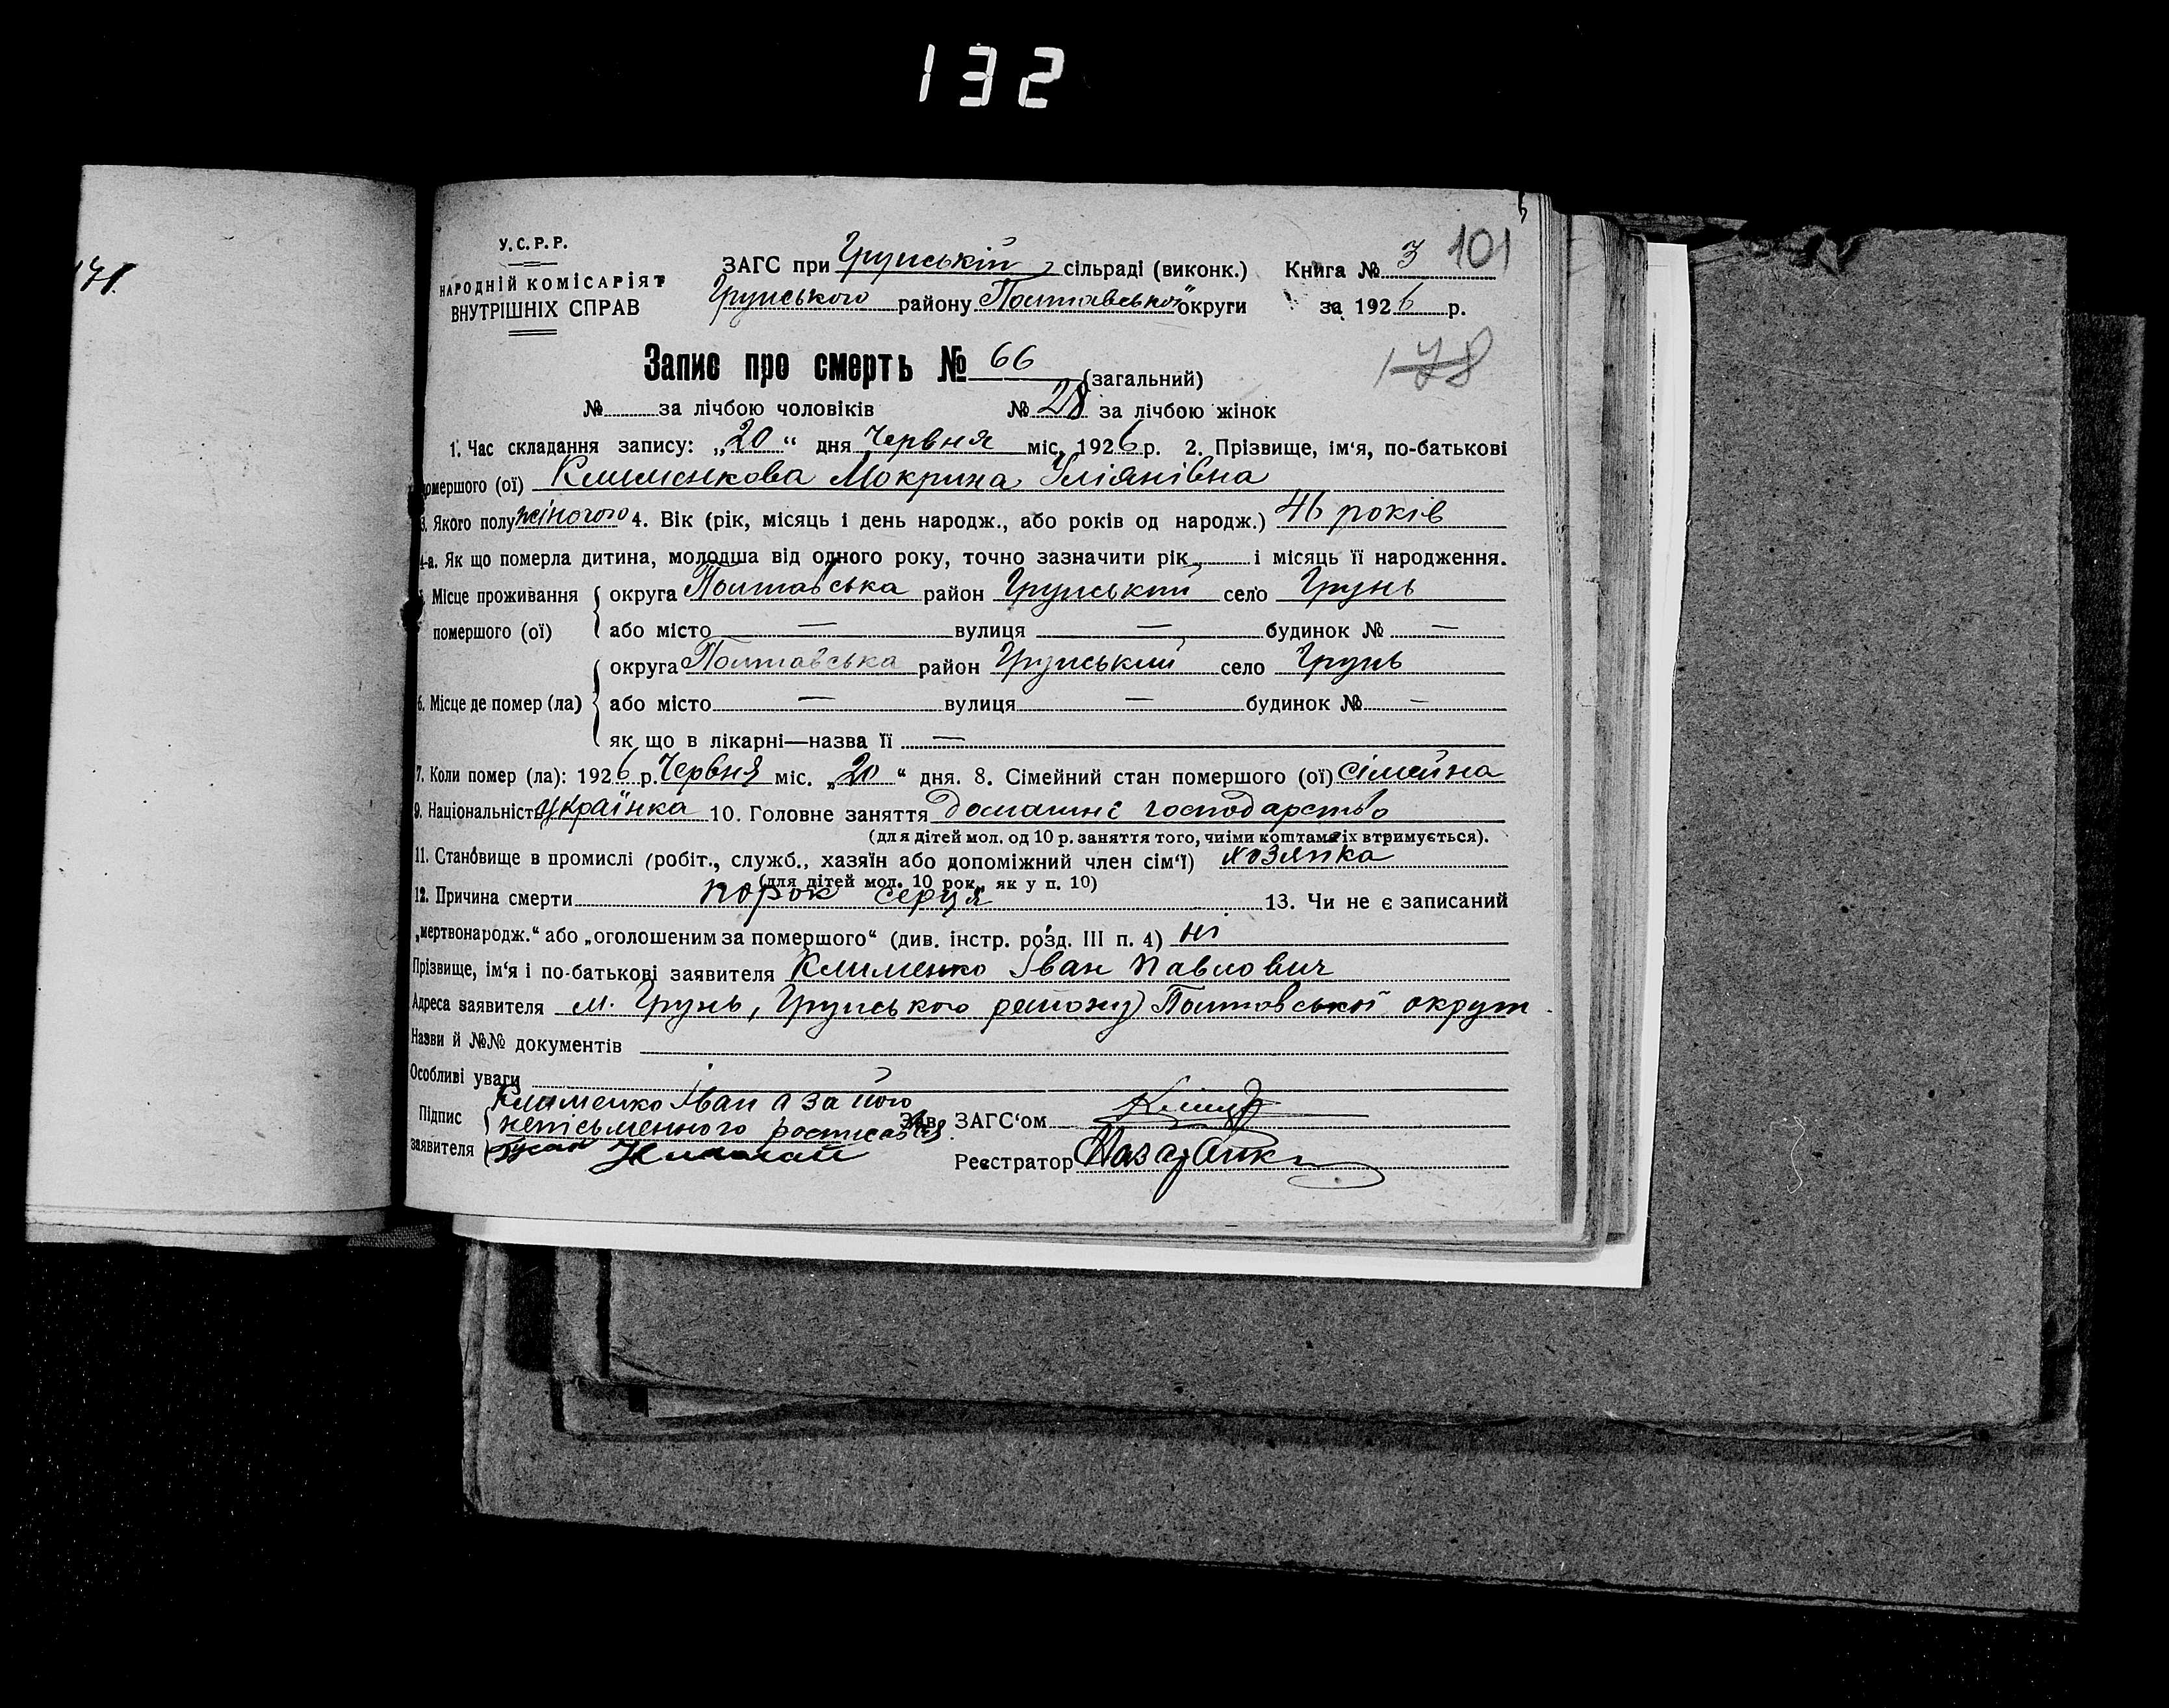 132
171.
У.С.Р.Р.
НАРОДНІЙ КОМІСАРІЯТ
ВНУТРІШНІХ СПРАВ
ЗАГС при Грунській сільраді (виконк.) Книга № 3 101
Грунського району Полтавської округи за 1926 р.
178
Запис про смерть № 66 (загальний)
№ за лічбою чоловіків № 28 за лічбою жінок
1. Час складання запису: „20“ дня Червня міс. 1926 р. 2. Прізвище, ім'я, по-батькові
помершого (ої) Клименкова Мокрина Уліянівна
3. Якого полу жіночого 4. Вік (рік, місяць і день народж., або років од народж.) 46 років
4-а. Як що померла дитина, молодша від одного року, точно зазначити рік і місяць її народження.
5. Місце проживання помершого (ої) округа Полтавська район Грунський село Грунь
або місто — вулиця — будинок № —
6. Місце де помер (ла) округа Полтавська район Грунський село Грунь
або місто — вулиця — будинок № —
як що в лікарні—назва її —
7. Коли помер (ла): 1926 р. Червня міс. „20“ дня. 8. Сімейний стан помершого (ої) сімейна
9. Національність Українка 10. Головне заняття домашнє господарство
(для дітей мол. од 10 р. заняття того, чиїми коштами їх втримується).
11. Становище в промислі (робіт., служб., хазяїн або допоміжний член сім'ї) хозяйка
(для дітей мол. 10 рок., як у п. 10)
12. Причина смерти порок серця 13. Чи не є записаний
„мертвонародж.“ або „оголошеним за помершого“ (див. інстр. розд. III п. 4) ні
Прізвище, ім'я і по-батькові заявителя Клименко Іван Павлович
Адреса заявителя м. Грунь, Грунського району Полтавської округи
Назви й №№ документів
Особливі уваги
Підпис заявителя Клименко Іван а за його
неписьменного росписався
Николай
Зав. ЗАГС'ом
Реєстратор